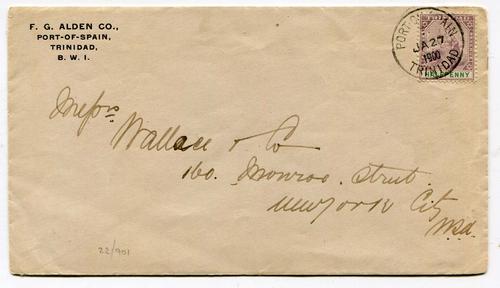 F. G. ALDEN CO.,
PORT-OF-SPAIN,
TRINIDAD,
B. W. I.
PORT OF SPAIN
JA 27
1900
TRINIDAD
HALFPENNY
Messrs
Wallace & Co
160. Monroe. Street.
New York City
22/901